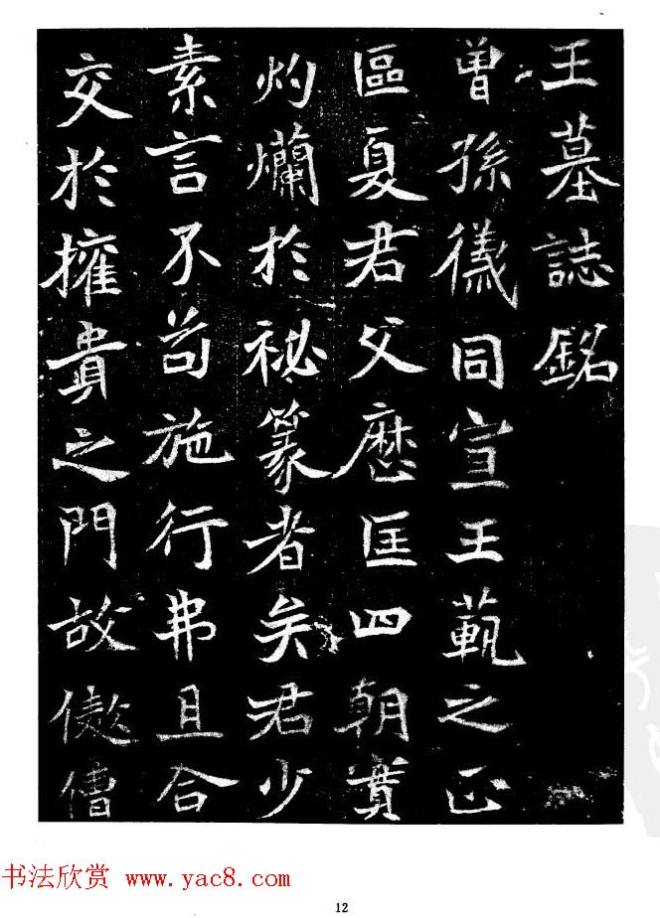 王墓誌銘
曾孫儀同宣王範之正
區夏君父歷匡四朝實
灼爛於祕篆者矣君少
素言不苟施行弗且合
交於擁貴之門故僚
書法欣赏 www.yac8.com
12